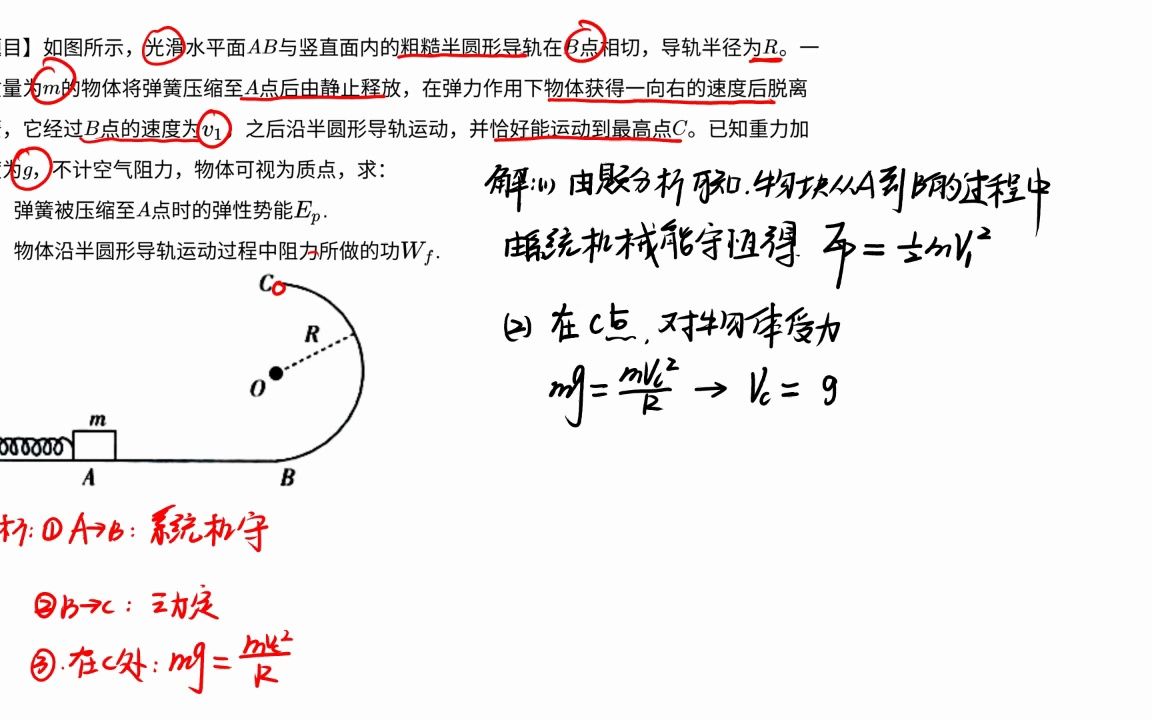 目】如图所示，光滑水平面AB与竖直面内的粗糙半圆形导轨在B点相切，导轨半径为R。一
量为m的物体将弹簧压缩至A点后由静止释放，在弹力作用下物体获得一向右的速度后脱离
，它经过B点的速度为v₁，之后沿半圆形导轨运动，并恰好能运动到最高点C。已知重力加
为g，不计空气阻力，物体可视为质点，求：
弹簧被压缩至A点时的弹性势能Eₚ.
物体沿半圆形导轨运动过程中阻力所做的功W_f.
解:(1) 由题分析可知.物块从A到B的过程中
由系统机械能守恒得 Ep = ½mV₁²
(2) 在C点,对物体受力
mg = mVc²/R → Vc = g
C
R
O
m
A
B
析: ① A→B: 系统机守
② B→C: 动定
③.在C处: mg = mVc²/R